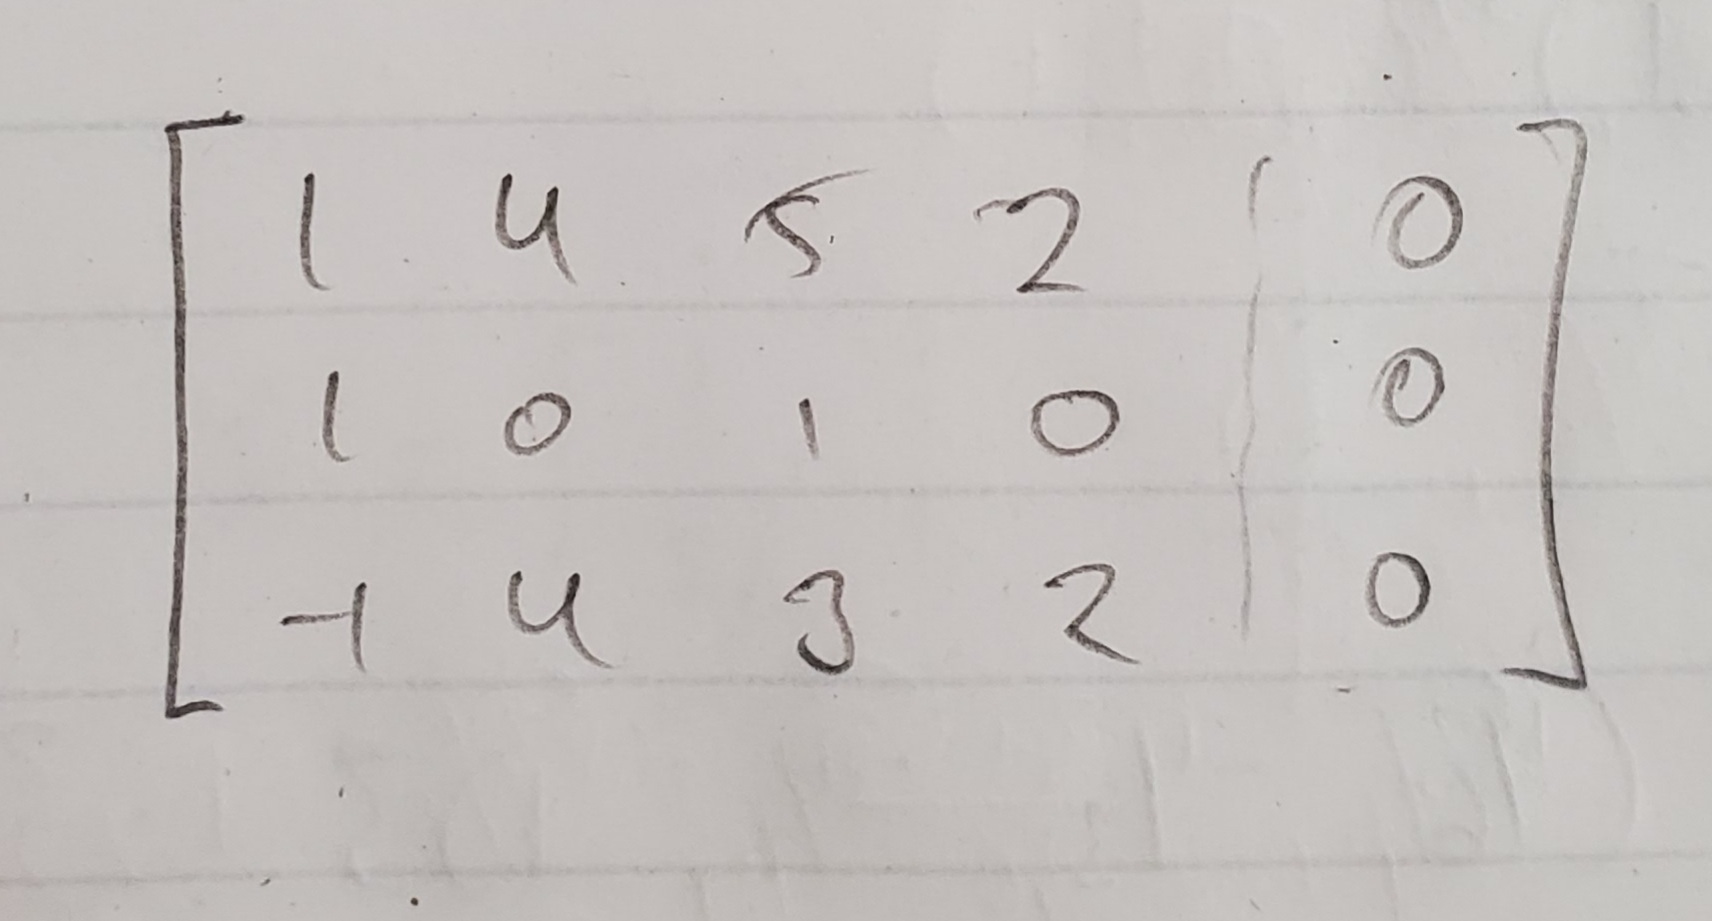 1 4 5 2 | 0
1 0 1 0 | 0
-1 4 3 2 | 0